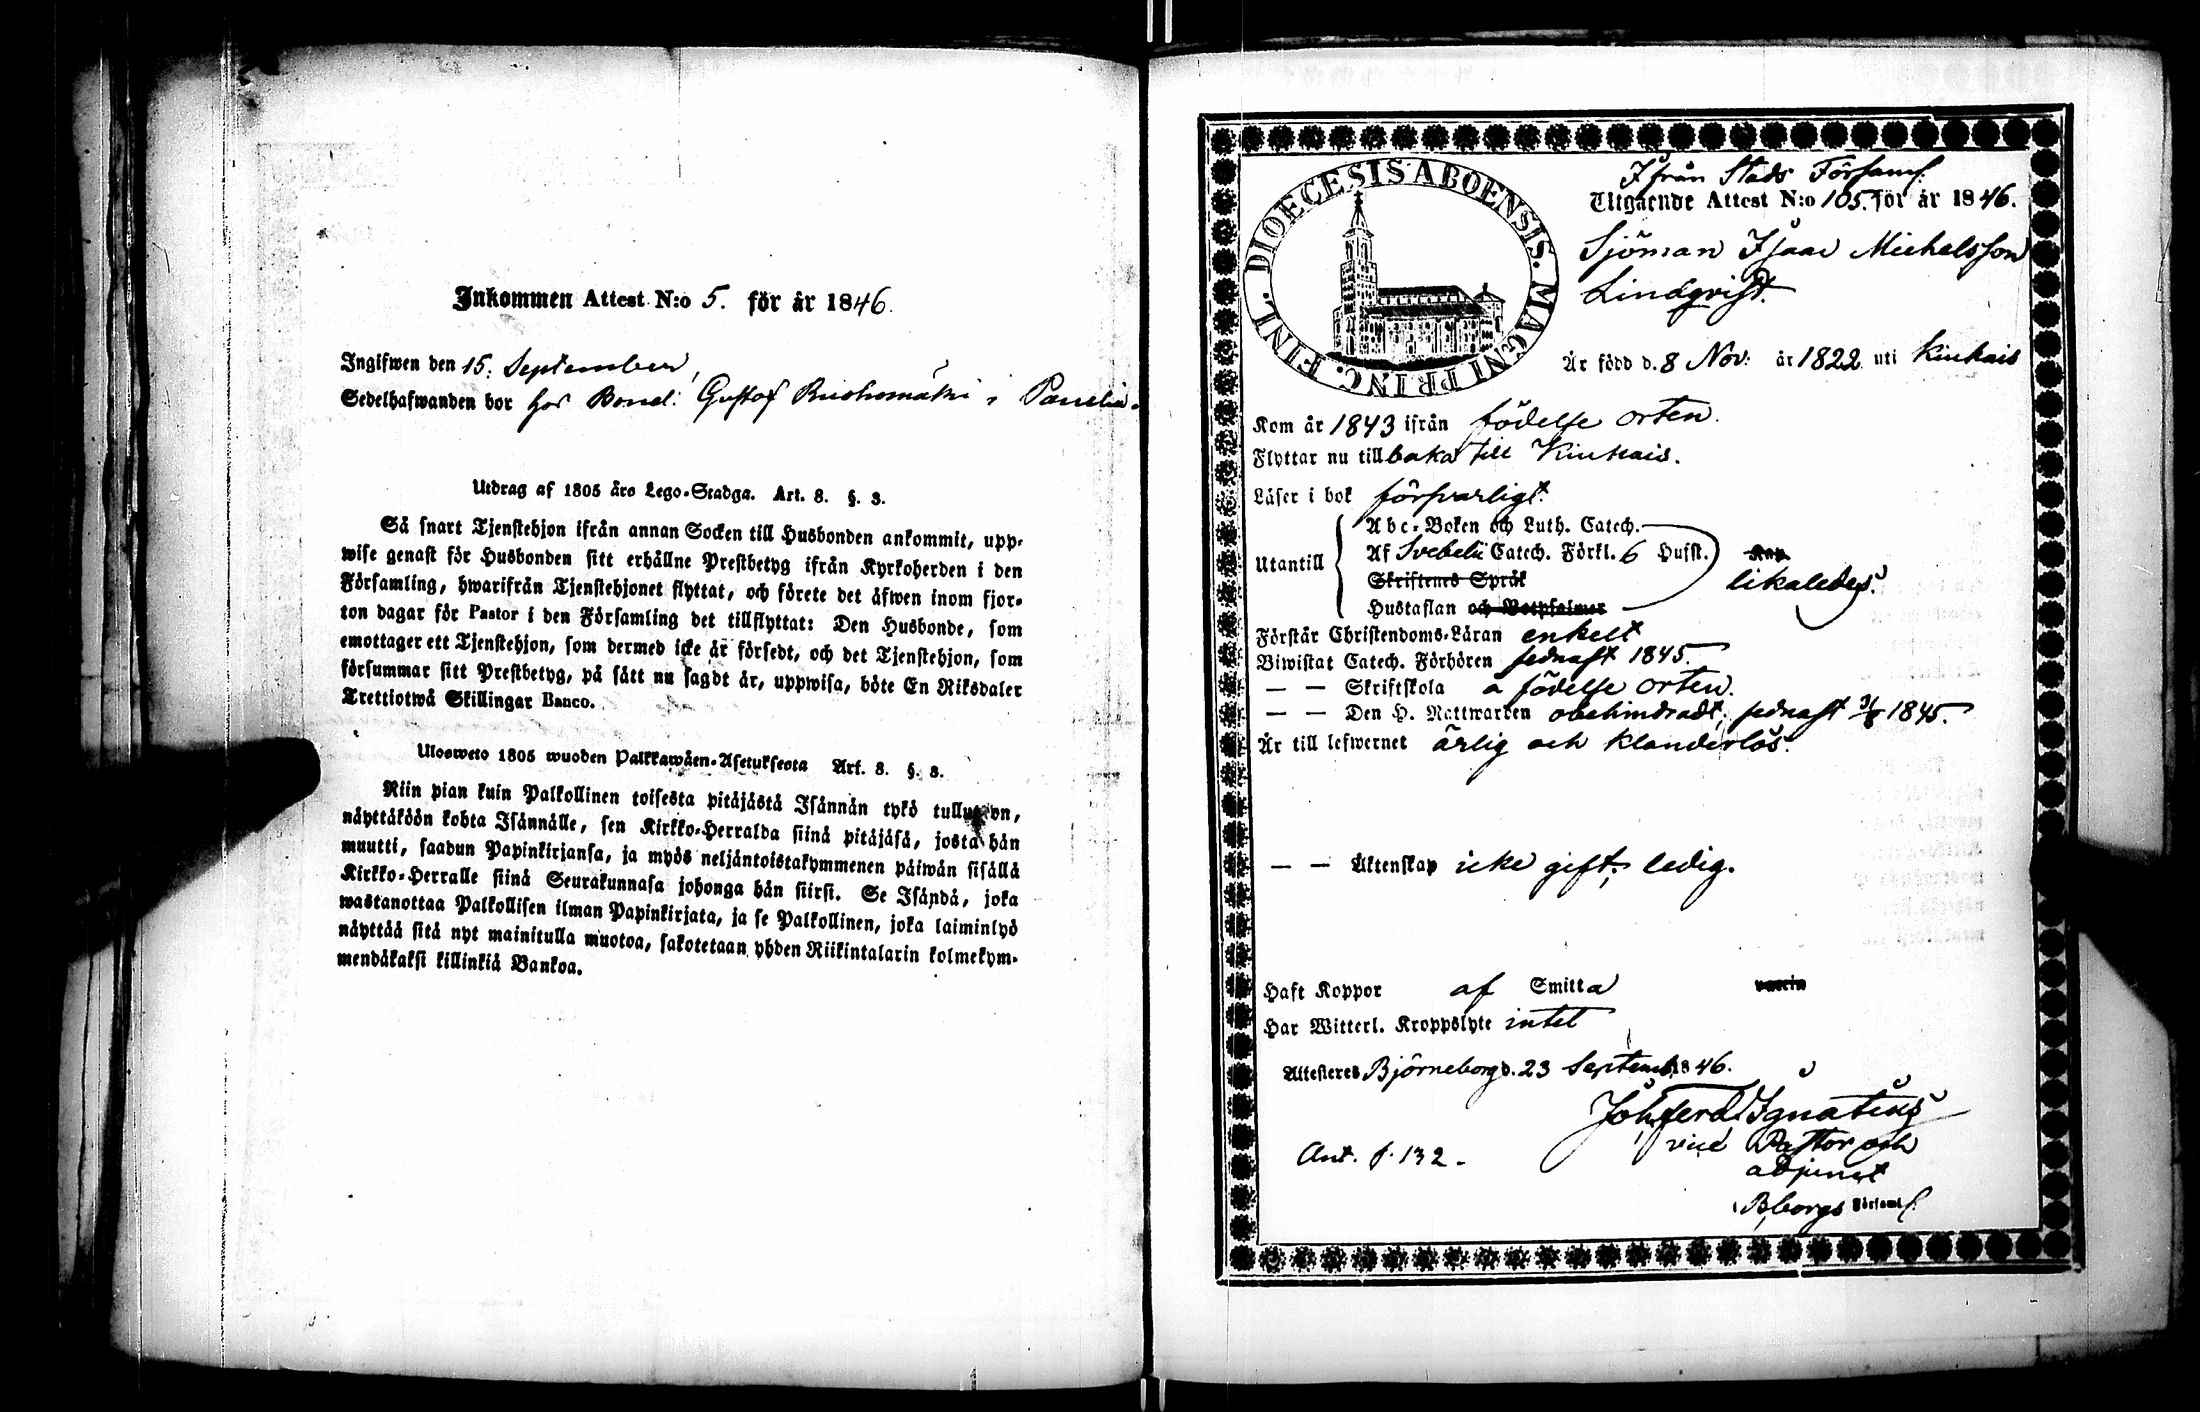 Inkommen Attest N:o 5. för år 1846.
Ingifwen den 15. September,
Sedelhafwanden bor hos Bond: Gustaf i Panelia.
Utdrag af 1805 års Lego-Stadga. Art. 8. §. 3.
Så snart Tjenstehjon ifrån annan Socken till Husbonden ankommit, upp-
wise genast för Husbonden sitt erhållne Prestbetyg ifrån Kyrkoherden i den
Församling, hwarifrån Tjenstehjonet flyttat, och förete det äfwen inom fjor-
ton dagar för Pastor i den Församling det tillflyttat: Den Husbonde, som
emottager ett Tjenstehjon, som dermed icke är försedt, och det Tjenstehjon, som
försummar sitt Prestbetyg, på sätt nu sagdt är, uppwisa, böte En Riksdaler
Trettiotwå Skillingar Banco.
Ulosweto 1805 wuoden Palkkawäen-Asetuksesta Art. 8. §. 3.
Niin pian kuin Palkollinen toisesta pitäjästä Isännän tykö tullut on,
näyttäköön kohta Isännälle, sen Kirkko-Herralda siinä pitäjäsä, josta hän
muutti, saadun Papinkirjansa, ja myös neljäntoistakymmenen päiwän sisällä
Kirkko-Herralle siinä Seurakunnasa johonga hän siirsi. Se Isändä, joka
wastanottaa Palkollisen ilman Papinkirjata, ja se Palkollinen, joka laiminlyö
näyttää sitä nyt mainitulla muotoa, sakotetaan yhden Riikintalarin kolmekym-
mendäkaksi killinkiä Bankoa.
FINL. DIOECESIS ABOENSIS. MAGNI PRINC.
Ifrån Stads Församl:
Utgående Attest N:o 105. för år 1846.
Sjöman Isaac Michelsson
Lindqvist.
Är född d. 8 Nov: år 1822 uti Kiukais
Kom år 1843 ifrån födelse orten.
Flyttar nu tillbaka till Kiukais.
Läser i bok försvarligt.
Abc-Boken och Luth. Catech.
Utantill Af Svebelii Catech. Förkl. 6 Hufst. Kap.
Skriftenes Språk likaledes.
Hustaflan och Botpsalmer
Förstår Christendoms-Läran enkelt
Biwistat Catech. Förhören sednast 1845.
— — Skriftskola å födelse orten.
— — Den H. Nattwarden obehindradt, sednast 3/8 1845.
Är till lefwernet ärlig och klanderlös.
— — Äktenskap icke gift, ledig.
Haft Koppor af Smitta vaccin
Har Witterl. Kroppslyte intet
Attesteres Björneborg d. 23 Septemb. 1846.
Joh. Ferd. Ignatius
vice Pastor och
Ant. f. 132.
adjunct
Bborgs Församl.